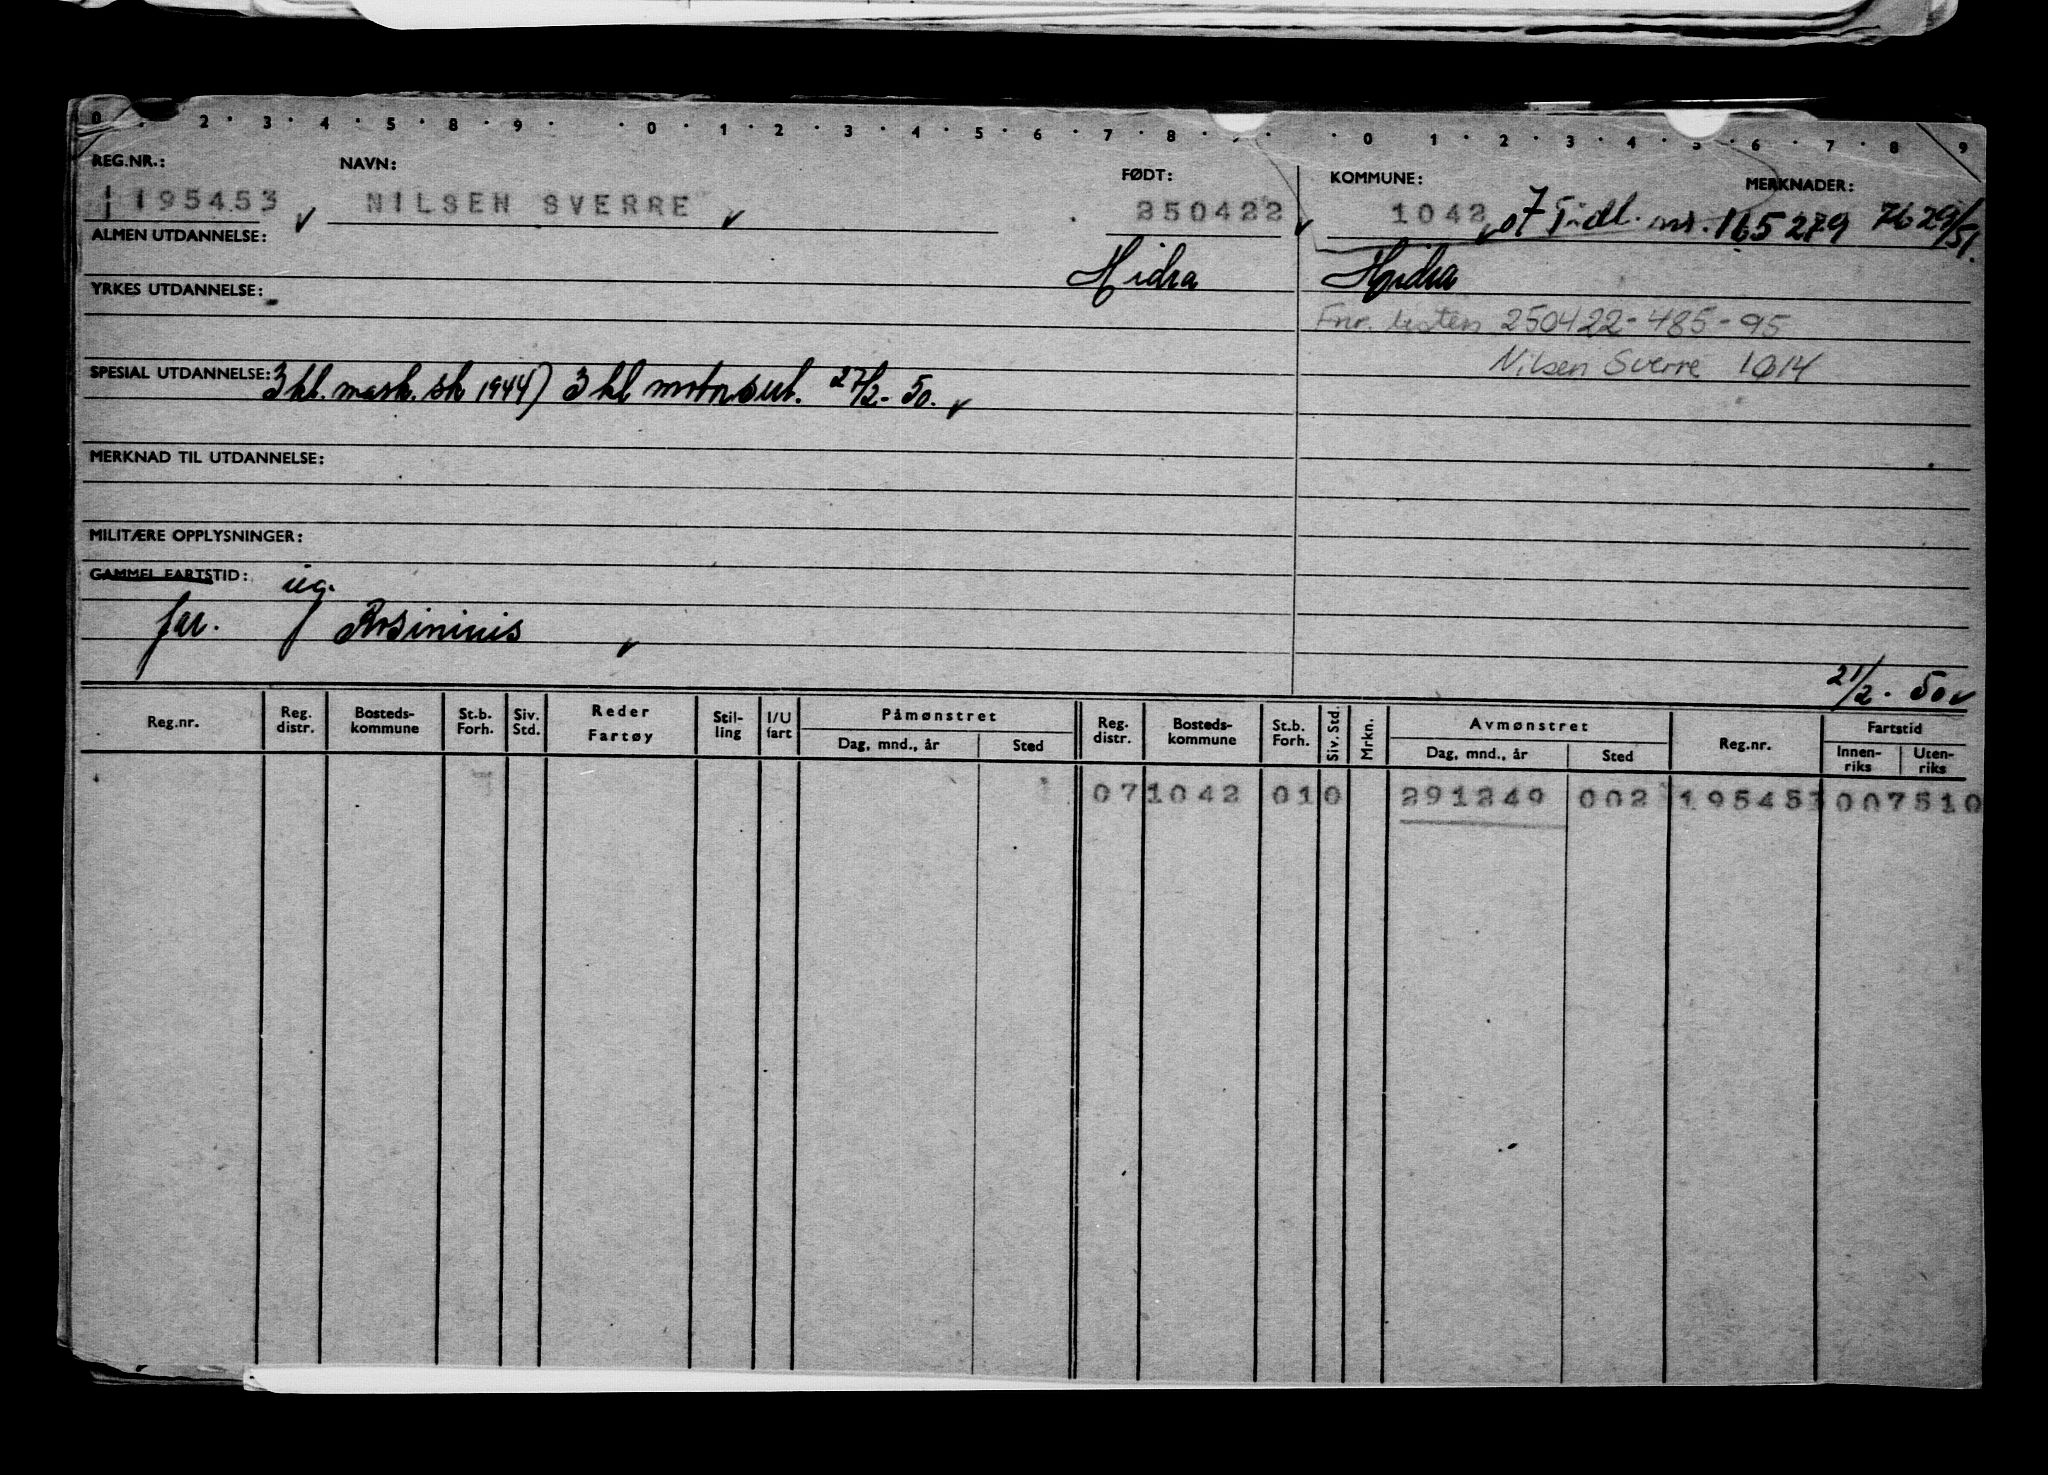 0 . 2 . 3 . 4 . 5 . 8 . 9 . . 0 . 1 . 2 . 3 . 4 . 5 . 6 . 7 . 8 . . . 0 . 1 . 2 . 3 . 4 . 5 . 6 . 7 . 8 . 9
REG.NR.: NAVN: FØDT: KOMMUNE: MERKNADER:
195453 NILSEN SVERRE 250422 1042 07 Tidl. nr. 165279 76 29/1 51.
ALMEN UTDANNELSE: Hidra Hidra
YRKES UTDANNELSE: Fnr. listen 250422-485-95
Nilsen Sverre 1014
SPESIAL UTDANNELSE: 3 kl. mask. sk 1944) 3 kl motorsert. 27/2-50.
MERKNAD TIL UTDANNELSE:
MILITÆRE OPPLYSNINGER:
GAMMEL FARTSTID: ug.
far.
21/2 - 50
Reg.nr. Reg. distr. Bosteds-kommune St.b. Forh. Siv. Std. Reder Fartøy Stil-ling I/U fart Påmønstret Dag, mnd., år Sted Reg. distr. Bosteds-kommune St.b. Forh. Siv. Std. Mrkn. Avmønstret Dag, mnd., år Sted Reg.nr. Fartstid Innen-riks Uten-riks
07 1042 01 0 291249 002 195453 007510